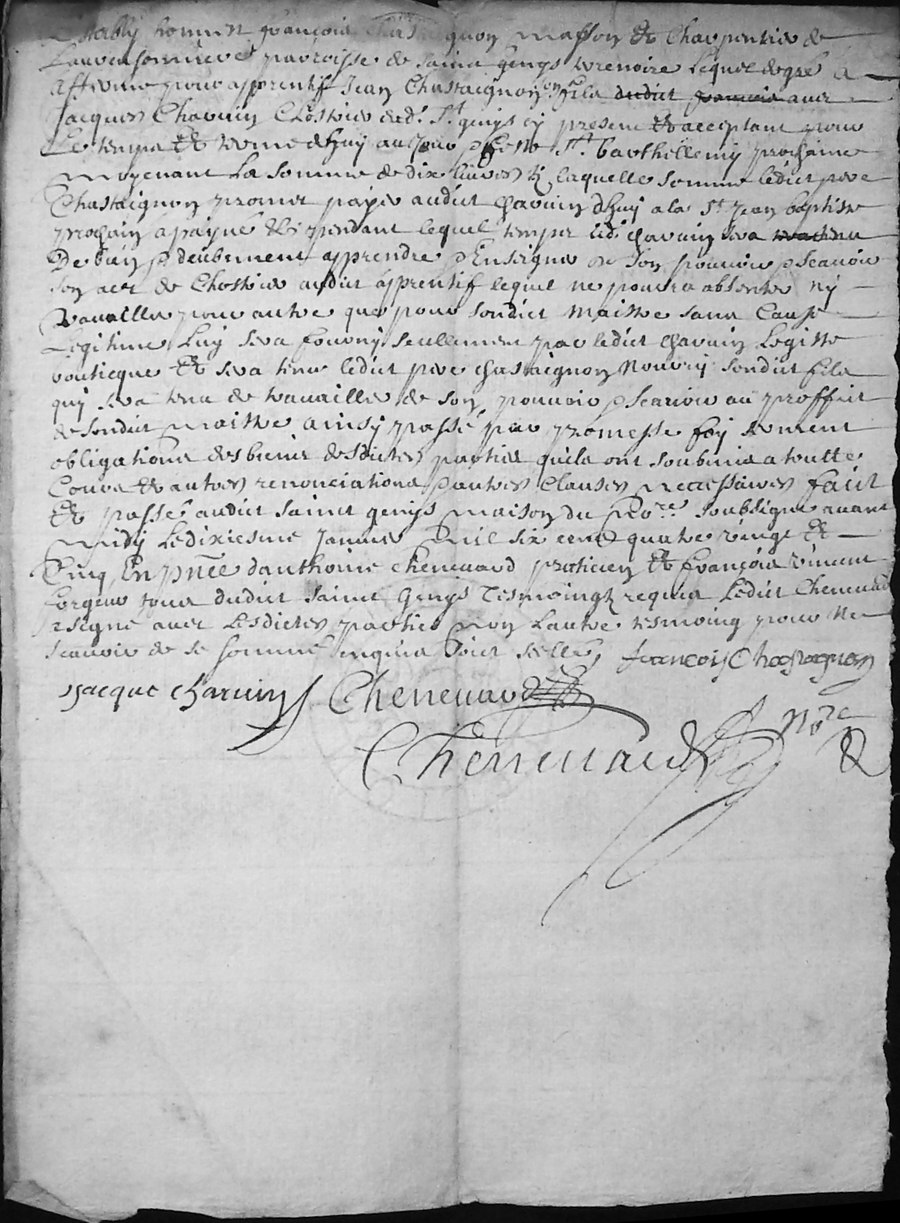 Estably honneste François Chastagnon masson & charpentier de
paroisse de Saint Genys Terrenoire lequel de gré a
affermé pour apprentif Jean Chastaignon son fils dudict François avec
Jacques Charuin Clostrier dud. St. Genys cy present & acceptant pour
Le temps & terme d'huy au jour & feste St. Barthellemy prochaine
moyenant La somme de dix livres tz laquelle somme ledict pere
Chastaignon promet payer audict Charuin d'huy a la St Jean baptiste
prochain a payne &c pendant lequel temps led. Charuin sera
De bien & deubement apprendre & Enseigner de son pouvoir & scavoir
son art de Clostrier audict apprentif lequel ne pourra absenter ny
travailler pour autre que pour sondict Maistre sans Cause
Legitime Luy sera fourny seullement par ledict Charuin
bouticque & sera tenu ledict pere Chastaignon Nourrir sondict fils
quy sera tenu de travailler de son pouvoir & scavoir au proffict
de sondict maistre ainsy passé par promesse foy serment
obligations des biens desdictes parties quils ont soubmis a toutte
Cours & autres renonciations & autres Clauses necessaires faict
& passé audict Saint Genys maison du No.re soubsigné avant
midy Le dixiesme Janvier mil six cens quatre vingt &
Cinq En pñce d'anthoine Chenevard praticien & François
forgeur tous dudict Saint Genys Tesmoingtz requis Ledict Chenevard
a signé avec Lesdictes parties non Lautre tesmoing pour ne
scavoir de ce sommé enquis François Chastagnon
Jacque Charuin Chenevard
Chenevard Nore R